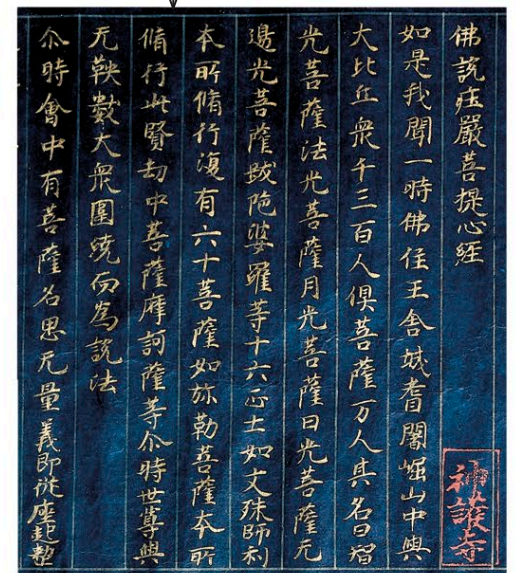 佛說莊嚴菩提心經
神護寺
如是我聞一時佛住王舍城耆闍崛山中與
大比丘衆千三百人俱菩薩万人其名曰智
光菩薩法光菩薩月光菩薩日光菩薩无
邊光菩薩跋陁婆羅等十六正士如文殊師利
本所脩行復有六十菩薩如弥勒菩薩本所
脩行此賢劫中菩薩摩訶薩等尒時世尊與
无鞅數大衆圍繞而爲說法
尒時會中有菩薩名思无量義即從座起整